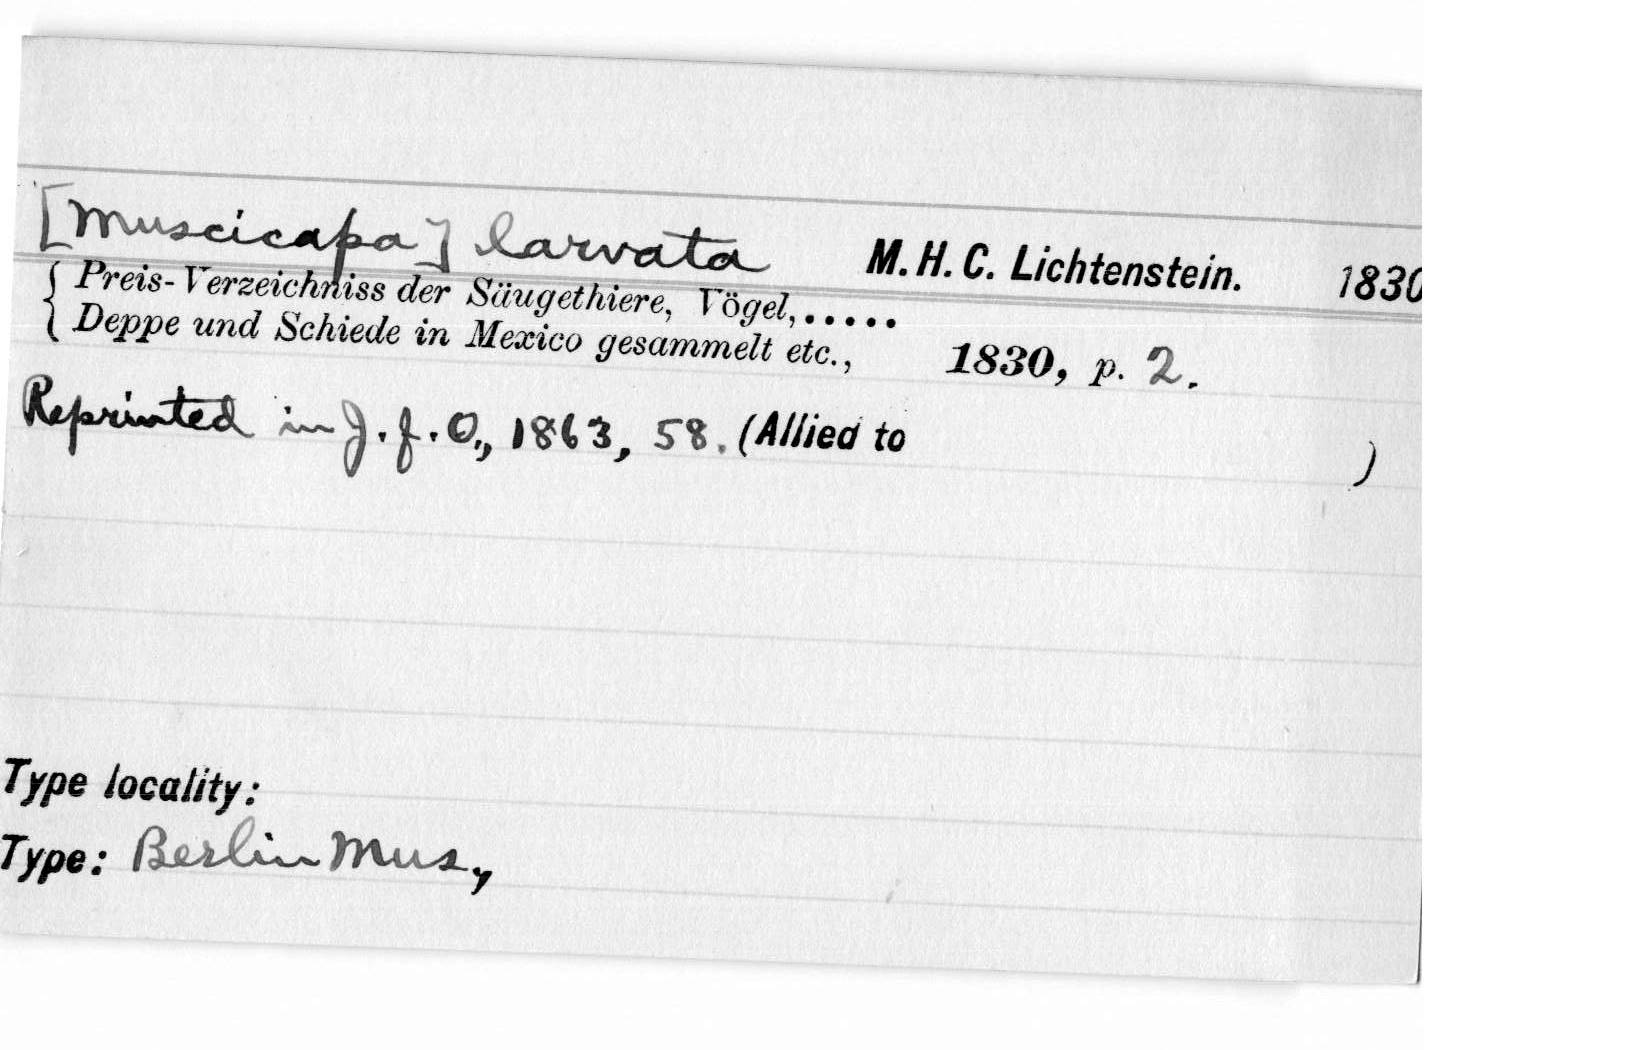 [Muscicapa] larvata M. H. C. Lichtenstein. 1830
{ Preis-Verzeichniss der Säugethiere, Vögel,.....
{ Deppe und Schiede in Mexico gesammelt etc., 1830, p. 2.
Reprinted in J. f. O., 1863, 58. (Allied to )
Type locality:
Type: Berlin Mus.,